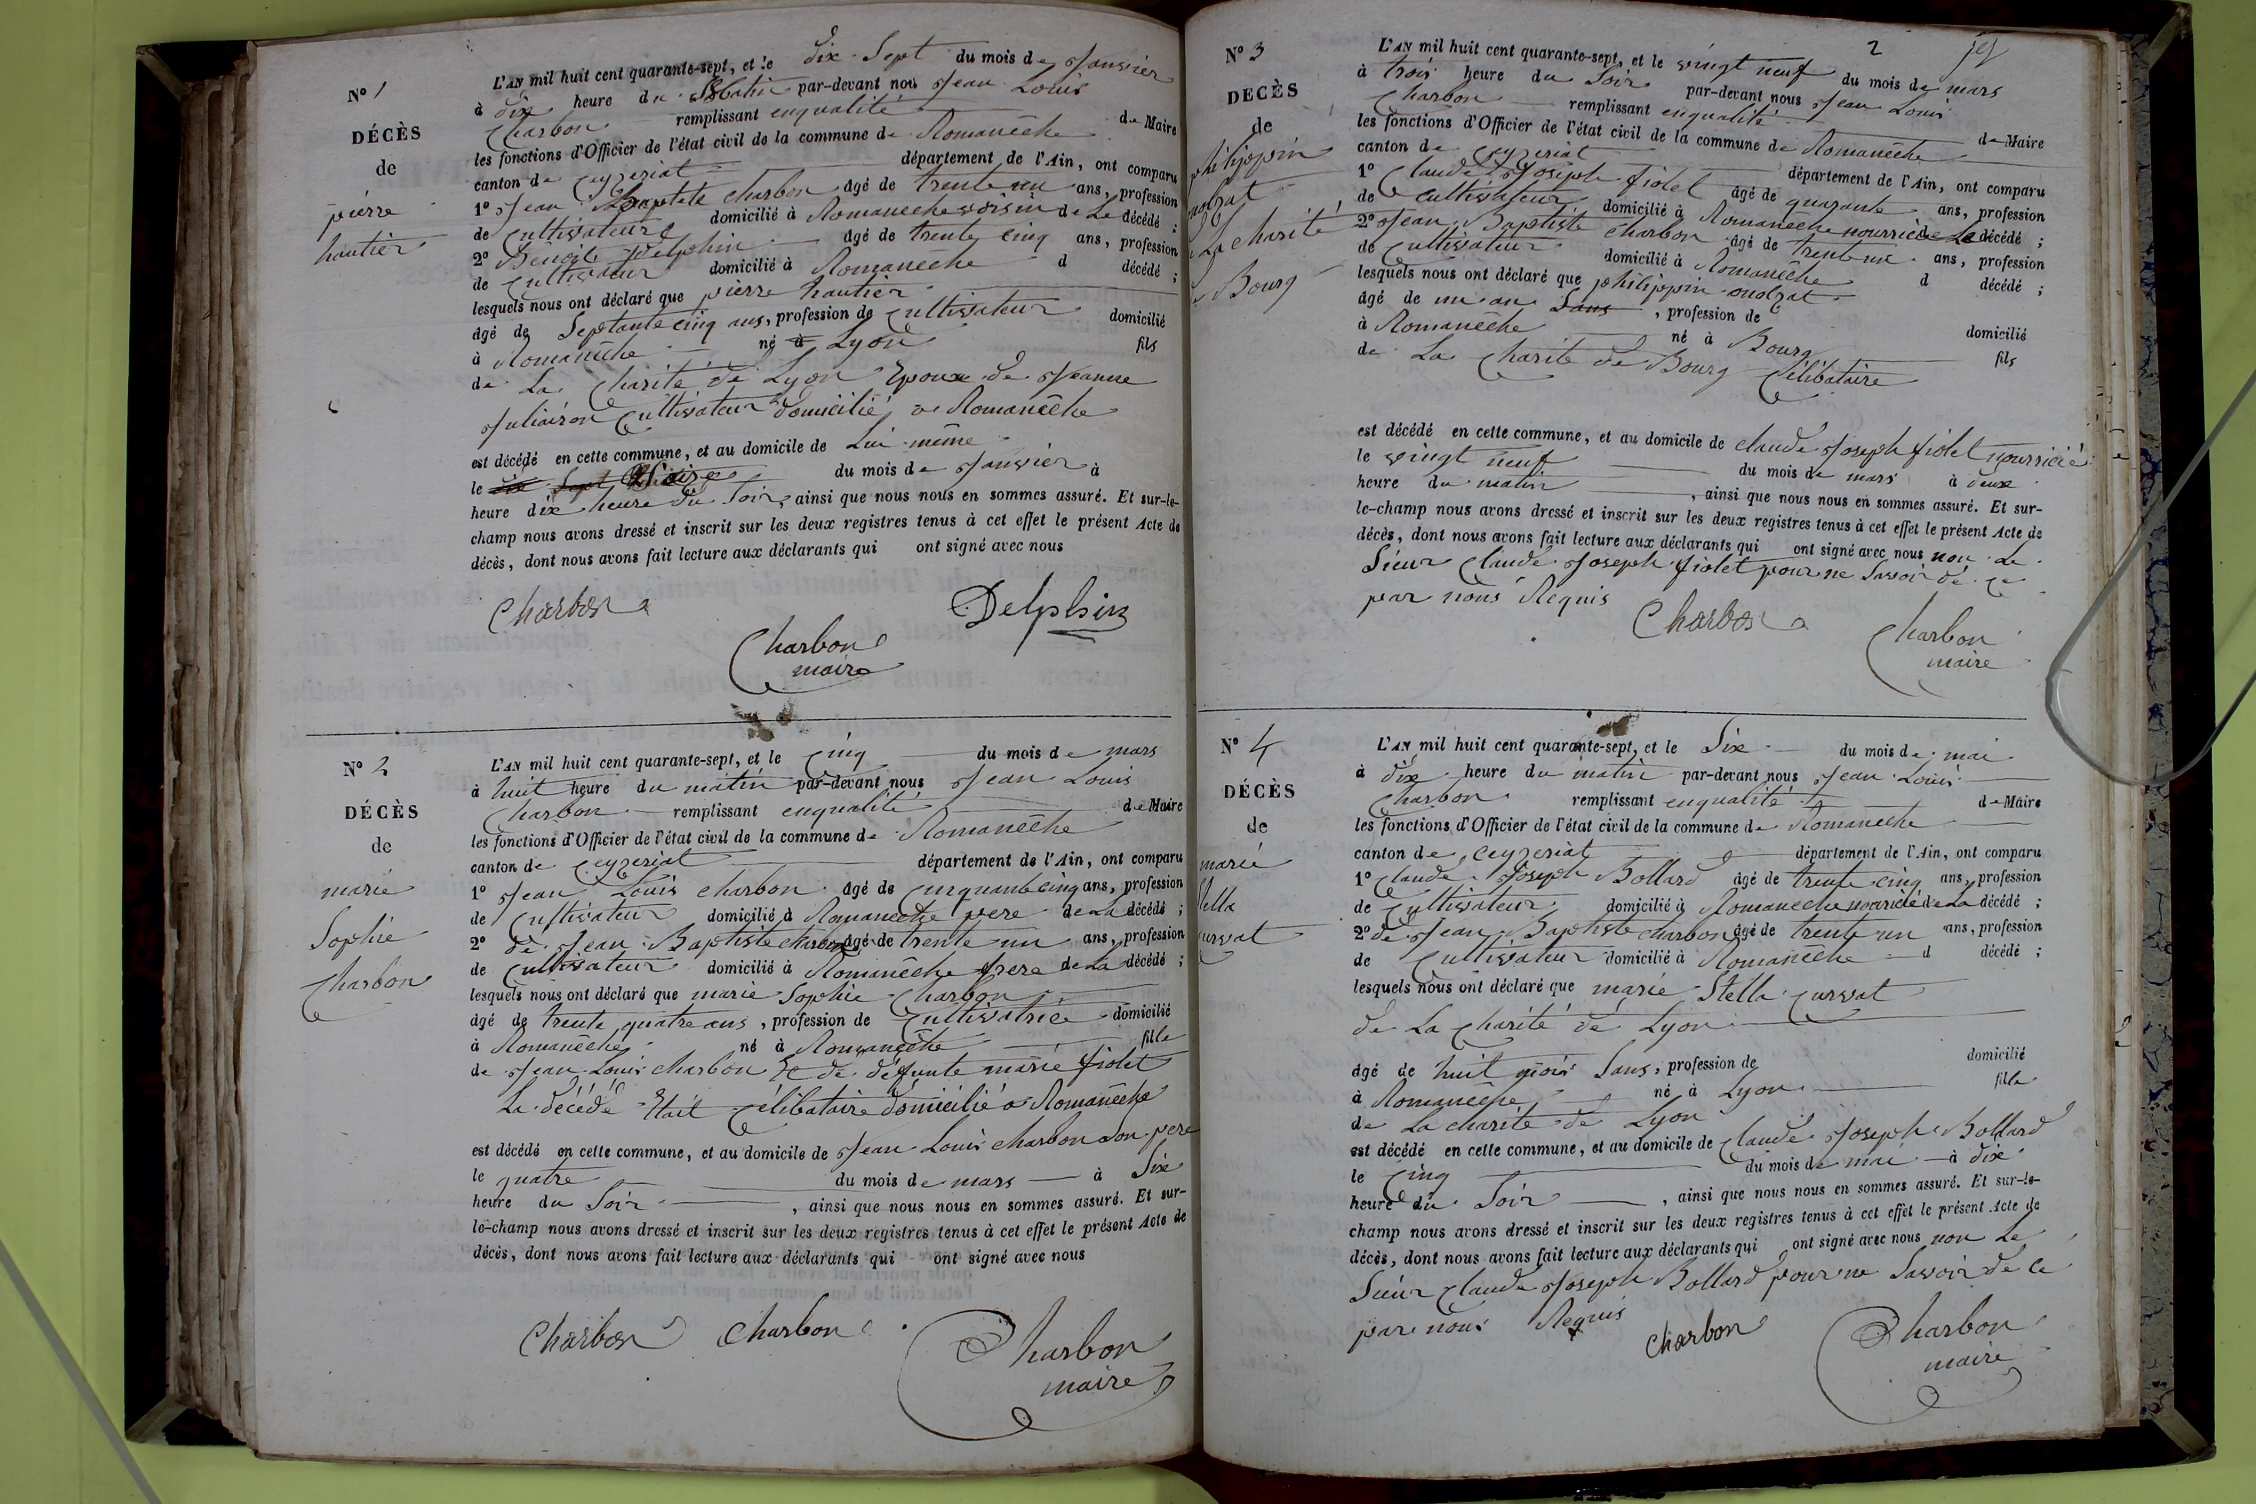 N° 1
DÉCÈS
de
pierre
hautier
L'AN mil huit cent quarante-sept, et le dix Sept du mois de Janvier
à dix heure du Matin par-devant nous Jean Louis
Charbon remplissant enqualité de Maire
les fonctions d'Officier de l'état civil de la commune de Romanêche
canton de Ceyzeriat département de l'Ain, ont comparu
1° Jean Baptiste Charbon âgé de trente un ans, profession
de Cultivateur domicilié à Romaneche voisin de Le décédé ;
2° Benoit Delphin âgé de trente cinq ans, profession
de Cultivateur domicilié à Romaneche d décédé ;
lesquels nous ont déclaré que pierre hautier
âgé de Septante cinq ans, profession de Cultivateur domicilié
à Romanêche né à Lyon fils
de La Charité de Lyon Epoux de Jeanne
Juliairon Cultivateur domicilié a Romanêche
est décédé en cette commune, et au domicile de Lui même
le dix Sept du mois de Janvier à
heure dix heure du Soir, ainsi que nous nous en sommes assuré. Et sur-le-
champ nous avons dressé et inscrit sur les deux registres tenus à cet effet le présent Acte de
décès, dont nous avons fait lecture aux déclarants qui ont signé avec nous
Charbon Delphin
Charbon
maire
N° 2
DÉCÈS
de
marie
Sophie
Charbon
L'AN mil huit cent quarante-sept, et le Cinq du mois de mars
à huit heure du matin par-devant nous Jean Louis
Charbon remplissant enqualité de Maire
les fonctions d'Officier de l'état civil de la commune de Romanêche
canton de Ceyzeriat département de l'Ain, ont comparu
1° Jean Louis Charbon âgé de Cinquante cinq ans, profession
de Cultivateur domicilié à Romaneche pere de La décédé ;
2° de Jean Baptiste charbon âgé de trente un ans, profession
de Cultivateur domicilié à Romanêche frere de La décédé ;
lesquels nous ont déclaré que marie Sophie Charbon
âgé de trente quatre ans, profession de Cultivatrice domicilié
à Romanêche né à Romanêche fille
de Jean Louis charbon Et de défunte marie fiolet
La décédé Etait Célibataire domicilié a Romanêche
est décédé en cette commune, et au domicile de Jean Louis charbon Son pere
le quatre du mois de mars à Six
heure du Soir, ainsi que nous nous en sommes assuré. Et sur-
le-champ nous avons dressé et inscrit sur les deux registres tenus à cet effet le présent Acte de
décès, dont nous avons fait lecture aux déclarants qui ont signé avec nous
Charbon Charbon Charbon
maire
2
N° 3
DECÈS
de
philippin
onobrat
La charité
Bourg
L'AN mil huit cent quarante-sept, et le vingt neuf du mois de mars
à trois heure du Soir par-devant nous Jean Louis
Charbon remplissant enqualité de Maire
les fonctions d'Officier de l'état civil de la commune de Romanêche
canton de Ceyzeriat département de l'Ain, ont comparu
1° Claude Joseph fiolet âgé de quarante ans, profession
de Cultivateur domicilié à Romanêche nourricié d Le décédé ;
2° Jean Baptiste Charbon âgé de trente un ans, profession
de Cultivateur domicilié à Romanêche d décédé ;
lesquels nous ont déclaré que philippin onobrat
âgé de un an Sans, profession de domicilié
à Romanêche né à Bourg fils
de La Charité de Bourg Célibataire
est décédé en cette commune, et au domicile de Claude Joseph fiolet nourricié
le vingt neuf du mois de mars à deux
heure du matin, ainsi que nous nous en sommes assuré. Et sur-
le-champ nous avons dressé et inscrit sur les deux registres tenus à cet effet le présent Acte de
décès, dont nous avons fait lecture aux déclarants qui ont signé avec nous non Le
Sieur Claude Joseph fiolet pour ne Savoir de Ce
par nous Requis
Charbon Charbon
maire
N° 4
DÉCÈS
de
marie
Stella
curvat
L'AN mil huit cent quarante-sept, et le Six du mois de mai
à dix heure du matin par-devant nous Jean Louis
Charbon remplissant enqualité de Maire
les fonctions d'Officier de l'état civil de la commune de Romanêche
canton de Ceyzeriat département de l'Ain, ont comparu
1° Claude Joseph Bollard âgé de trente cinq ans, profession
de Cultivateur domicilié à Romaneche nouricié de La décédé ;
2° de Jean Baptiste charbon âgé de trente un ans, profession
de Cultivateur domicilié à Romanêche d décédé ;
lesquels nous ont déclaré que marie Stella Curvat
de La Charité de Lyon
âgé de huit mois Sans, profession de domicilié
à Romanêche né à Lyon fille
de La charité de Lyon
est décédé en cette commune, et au domicile de Claude Joseph Bollard
le Cinq du mois de mai à dix
heure du Soir, ainsi que nous nous en sommes assuré. Et sur-le-
champ nous avons dressé et inscrit sur les deux registres tenus à cet effet le présent Acte de
décès, dont nous avons fait lecture aux déclarants qui ont signé avec nous non Le
Sieur Claude Joseph Bollard pour ne Savoir de Ce
par nous Requis
Charbon Charbon
maire